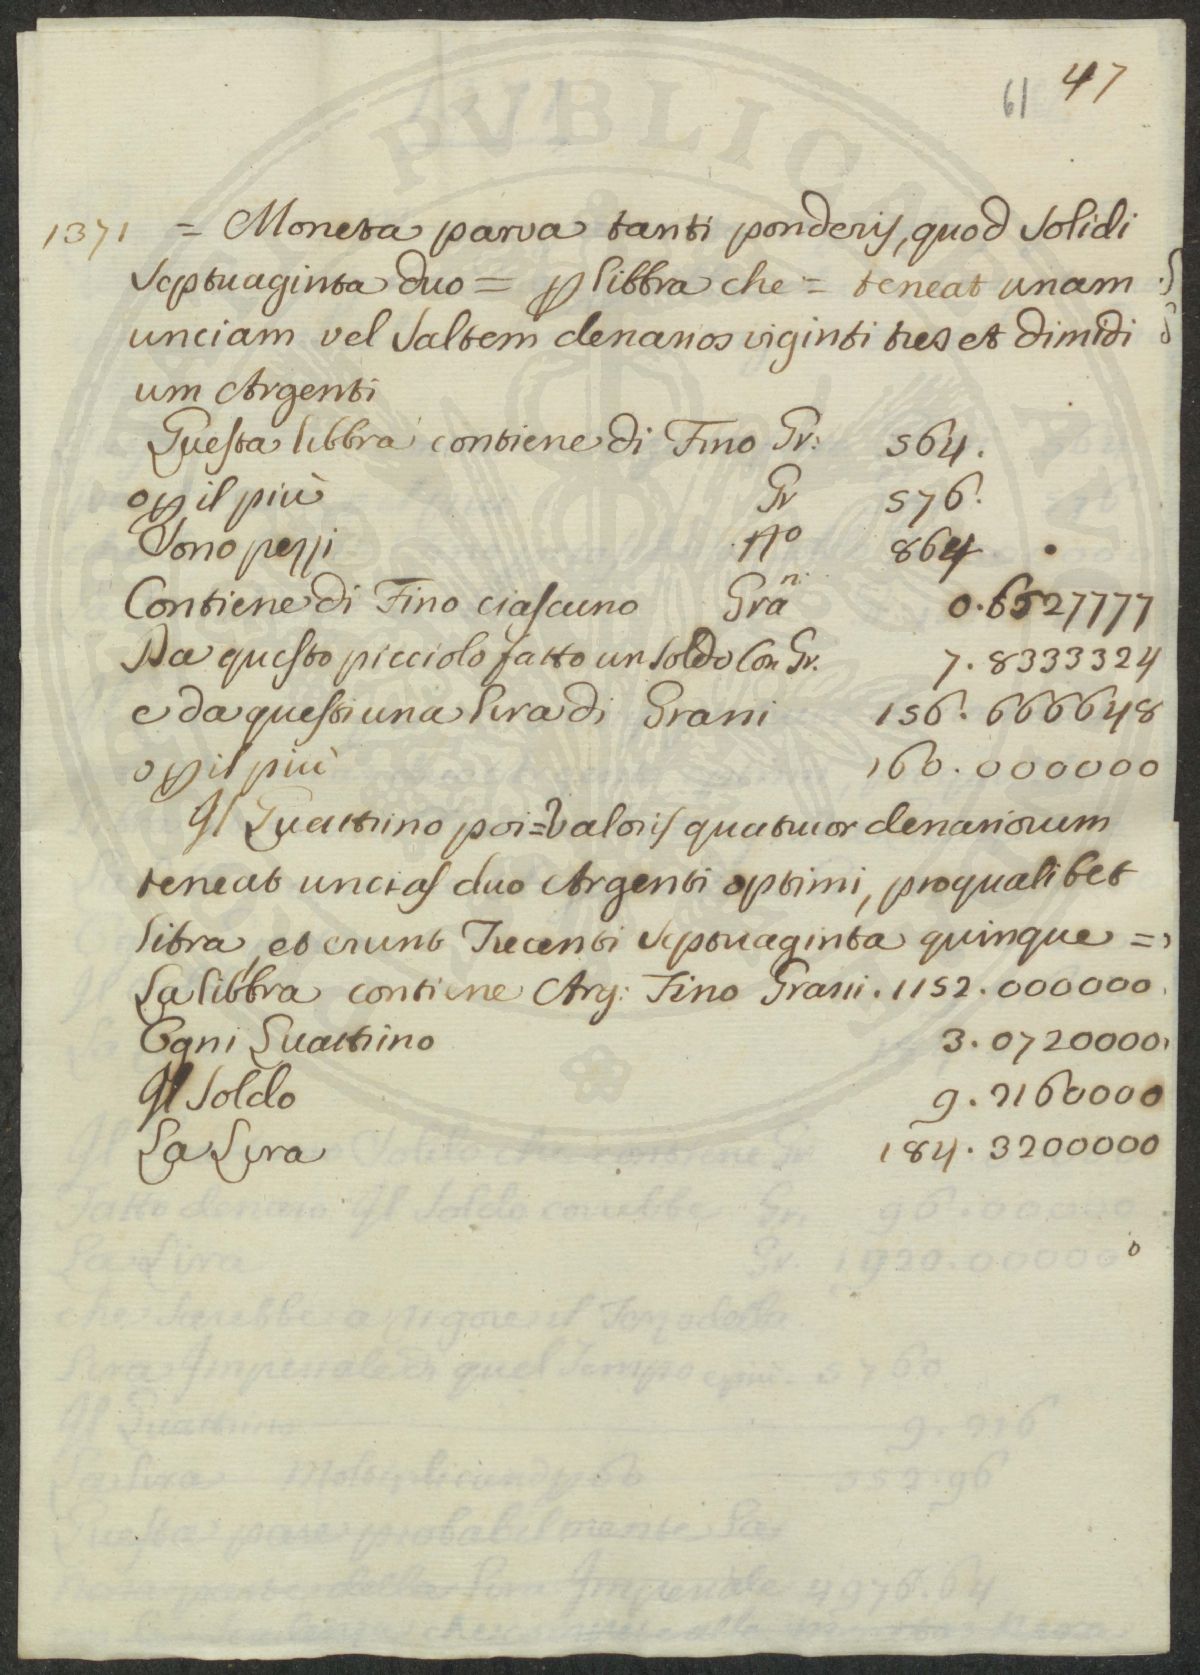 61 47
1371 = Moneta parva tanti ponderis, quod Solidi
Septuaginta duo = p libbra che = teneat unam
unciam vel Saltem denarios viginti tres et dimidi
um Argenti
Questa libbra contiene di Fino Gr: 564.
o p il più Gr 576.
Sono pezzi No 864
Contiene di Fino ciascuno Gran 0.6527777
Da questo picciolo fatto un Soldo Con Gr. 7.8333324
e da questi una lira di Grani 156.666648
o p il più 160.000000
Il Quattrino poi = Valoris quatuor denariorum
teneat uncias duo Argenti optimi, pro qualibet
libra, et erunt Trecenti Septuaginta quinque =
La libbra contiene Arg: Fino Grani. 1152.000000
Ogni Quattrino 3.0720000
Il Soldo 9.2160000
La Lira 184.3200000